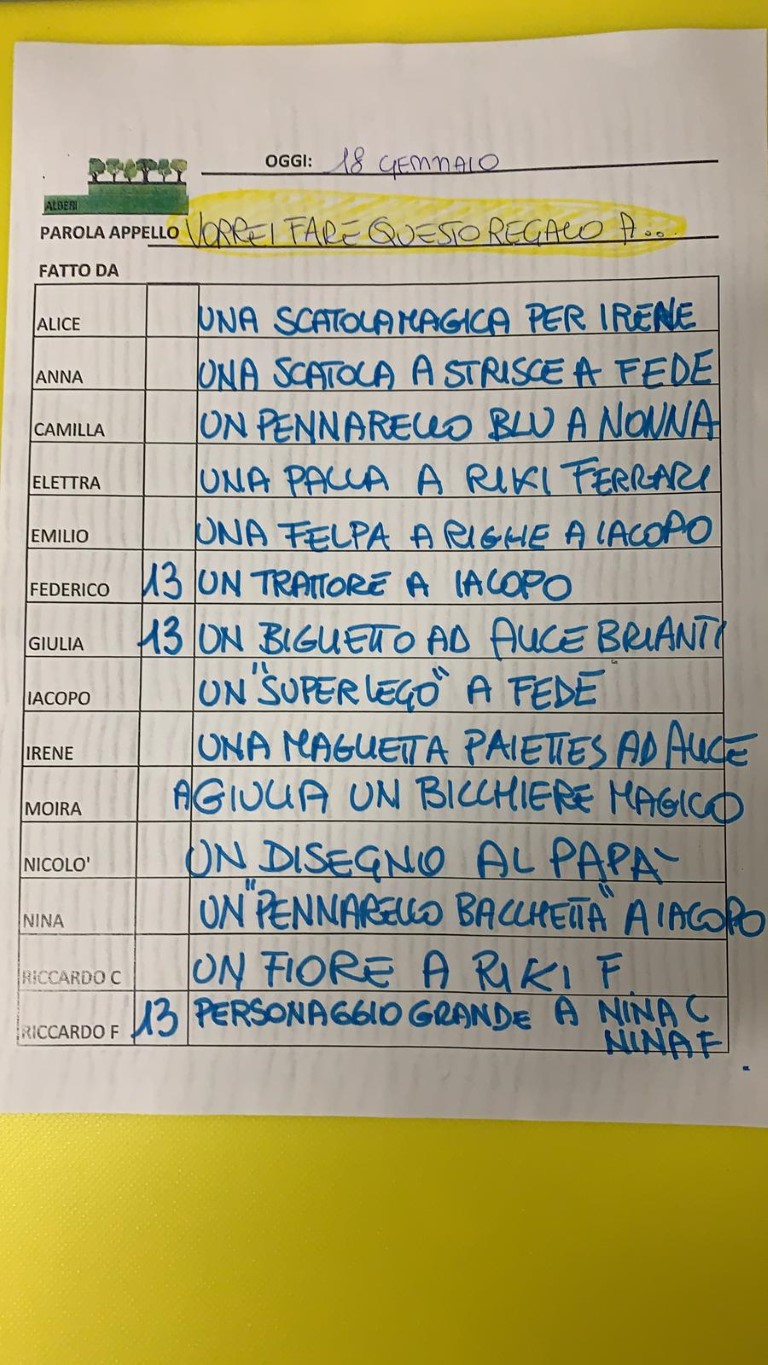 OGGI: 18 GENNAIO
ALBERI
PAROLA APPELLO VORREI FARE QUESTO REGALO A...
FATTO DA
ALICE UNA SCATOLA MAGICA PER IRENE
ANNA UNA SCATOLA A STRISCE A FEDE
CAMILLA UN PENNARELLO BLU A NONNA
ELETTRA UNA PALLA A RIKI FERRARI
EMILIO UNA FELPA A RIGHE A IACOPO
FEDERICO 13 UN TRATTORE A IACOPO
GIULIA 13 UN BIGLIETTO AD ALICE BRIANTI
IACOPO UN "SUPER LEGO" A FEDE
IRENE UNA MAGLIETTA PAIETTES AD ALICE
MOIRA A GIULIA UN BICCHIERE MAGICO
NICOLO' UN DISEGNO AL PAPÀ
NINA UN "PENNARELLO BACCHETTA" A IACOPO
RICCARDO C UN FIORE A RIKI F.
RICCARDO F 13 PERSONAGGIO GRANDE A NINA C
NINA F